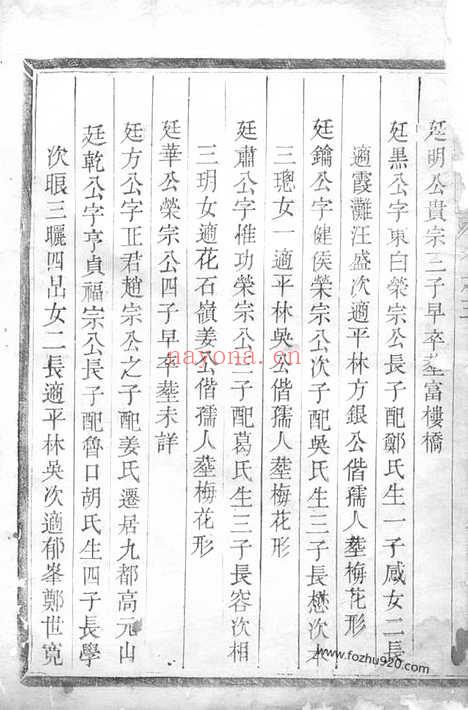 廷明公貴宗三子早卒塟富樓橋
廷黒公字東白榮宗公長子配鄭氏生一子咸女二長
適霞灘汪盛次適平林方銀公偕孺人塟梅花形
廷鑰公字健侯榮宗公次子配吳氏生三子長懋次
三璁女一適平林吳公偕孺人塟梅花形
廷肅公字惟功榮宗公三子配葛氏生三子長容次相
三玥女適花石嶺姜公偕孺人塟梅花形
廷華公榮宗公四子早卒塟未詳
廷方公字正君趙宗公之子配姜氏遷居九都高元山
廷乾公字亨貞福宗公長子配魯口胡氏生四子長學
次眼三曬四品女二長適平林吳次適郁峯鄭世寛
nayona.cn
www.fozhu920.com